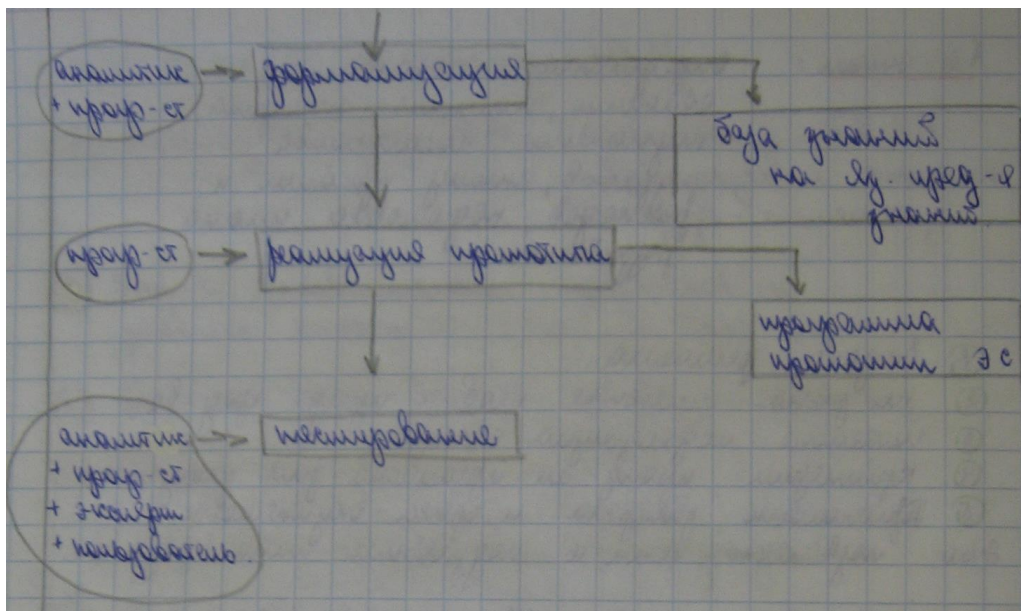 аналитик
+ прогр-ст
формализация
база знаний
на яз. пред-я
знаний
прогр-ст
реализация прототипа
программа
прототип ЭС
аналитик
+ прогр-ст
+ эксперт
+ пользователь
тестирование